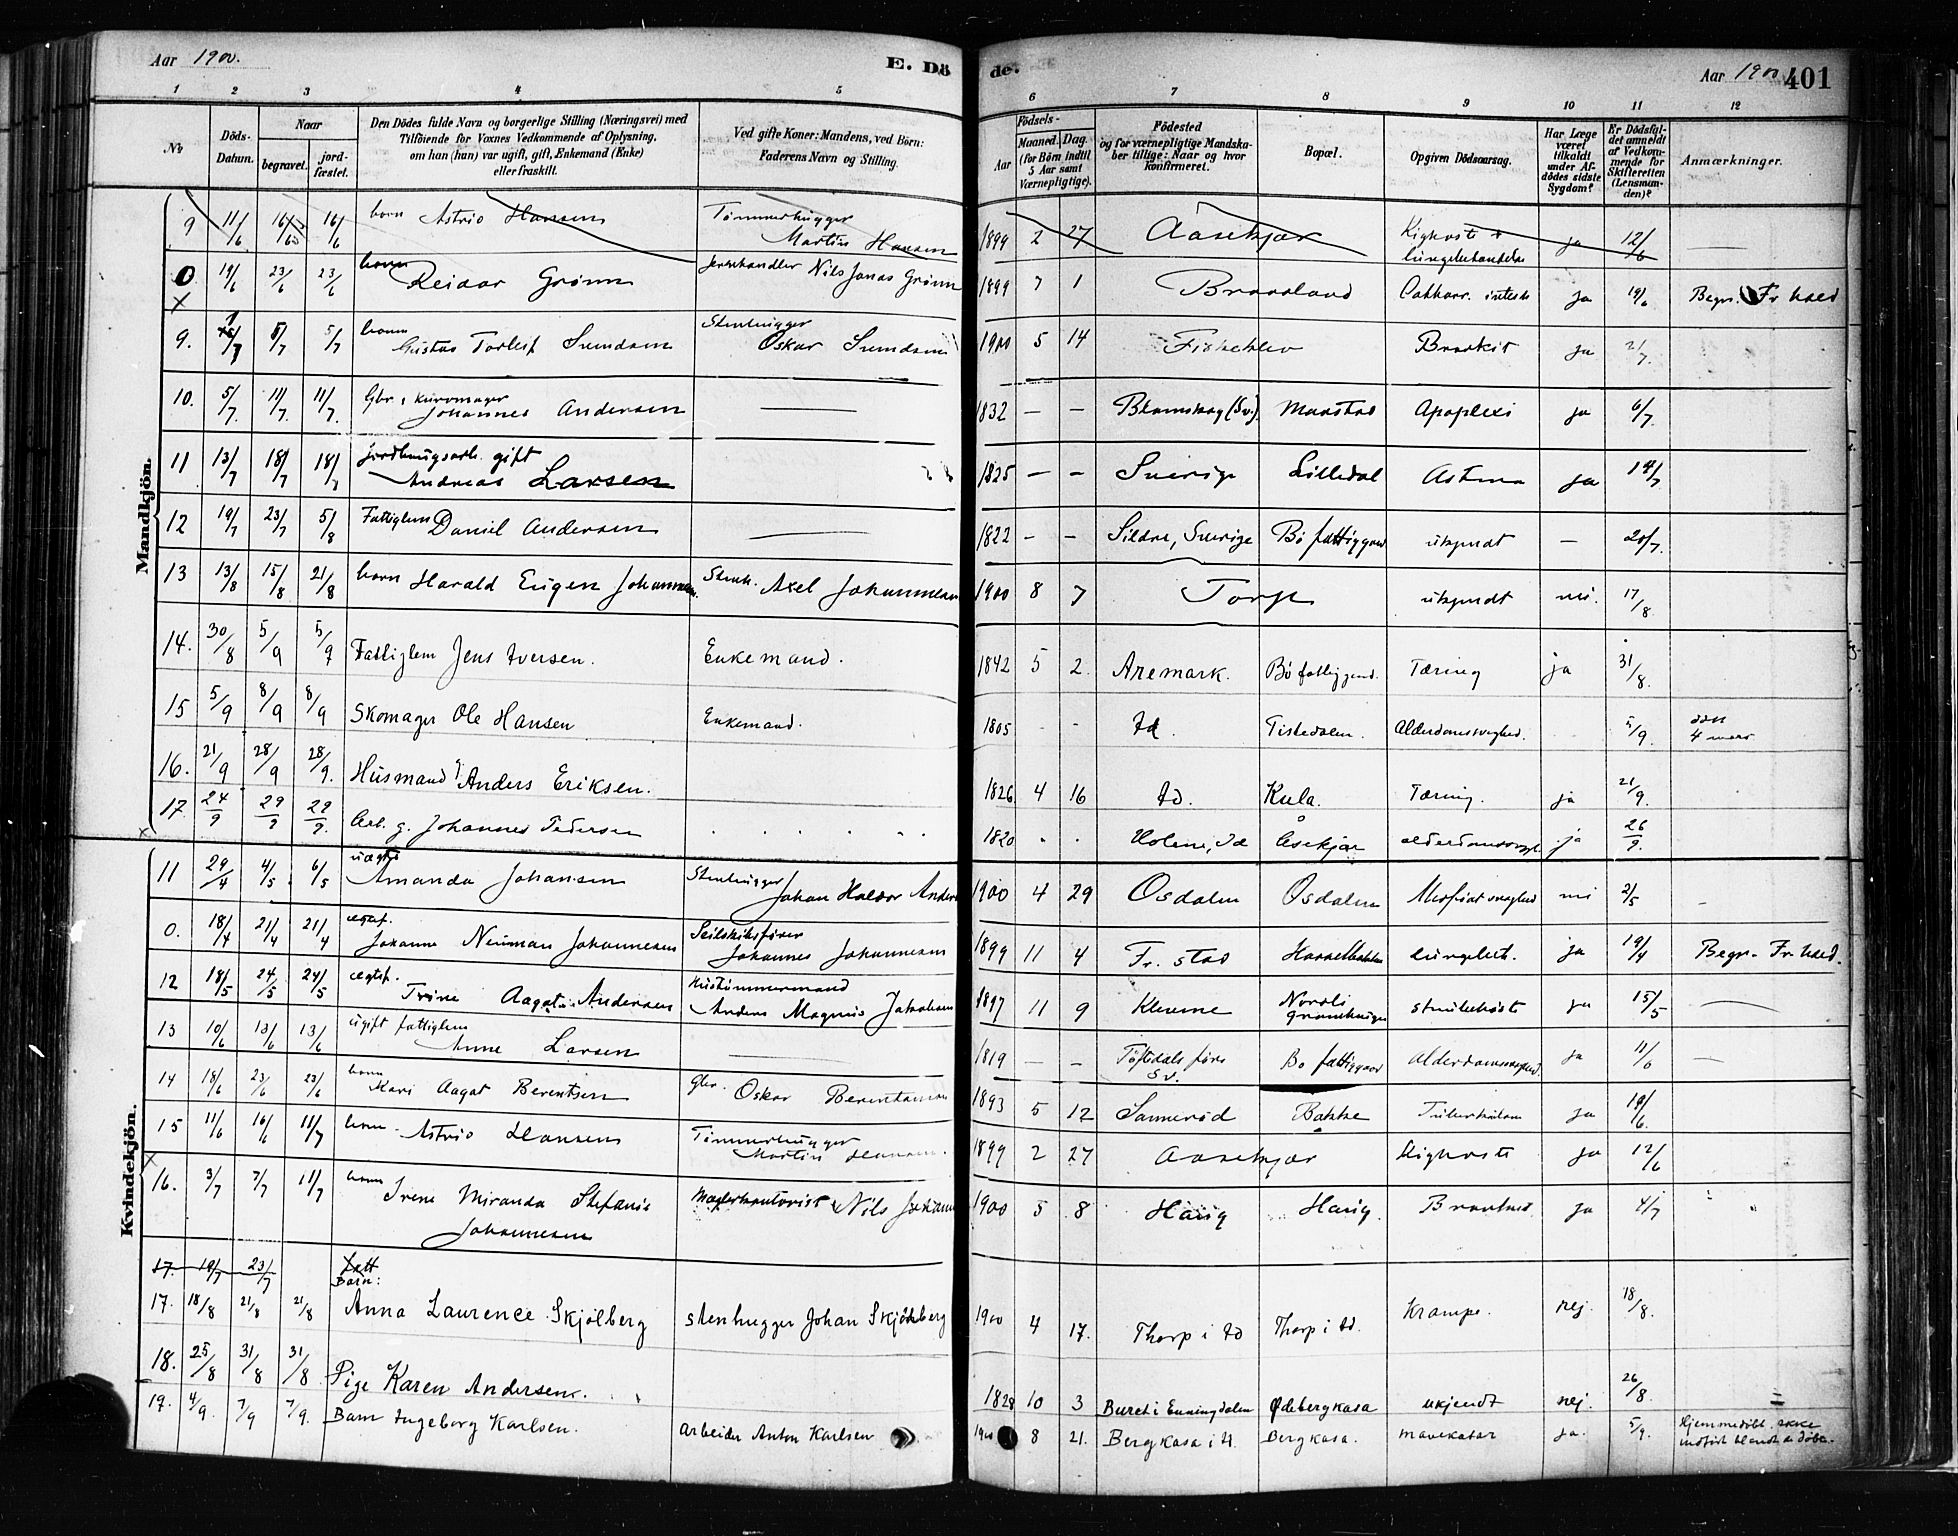 Aar 1900.
E. Dö
de.
Aar 1900
401
1 2 3 4 5 6 7 8 9 10 11 12
No
Döds-Datum.
Naar
begravet.
jord-fæstet.
Den Dödes fulde Navn og borgerlige Stilling (Næringsvei) med
Tilföiende for Voxnes Vedkommende af Oplysning,
om han (hun) var ugift, gift, Enkemand (Enke)
eller fraskilt.
Ved gifte Koner: Mandens, ved Börn:
Faderens Navn og Stilling.
Födsels-
Aar
Maaned. Dag.
(for Börn indtil
5 Aar samt
Værnepligtige).
Födested
og for værnepligtige Mandska-
ber tillige: Naar og hvor
konfirmeret.
Bopæl.
Opgiven Dödsaarsag.
Har Læge
været
tilkaldt
under Af-
dödes sidste
Sygdom?
Er Dödsfal-
det anmeldt
af Vedkom-
mende for
Skifteretten
(Lensman-
den)?
Anmærkninger.
Mandkjön.
9 11/6 16/6 16/6 barn Astrid Hansen Tømmerhugger Martin Hansen 1899 2 27 Aasekjær Kighoste ja 12/6 —
0 19/6 23/6 23/6 barn Reidar Grönn Nils Jonas Grönn 1899 7 1 ja 19/6 Begr. Fr hald
9. 5/7 5/7 barn Gustav Torleif Svendsen Stenhugger Oskar Svendsen 1900 5 14 ja 2/7.
10. 5/7. 11/7. 11/7. Gbr. kurvmager Johannes Andersen — 1832 — — Blomskog (Sv.) Apoplexi ja 6/7.
11 13/7 18/7 18/7 gift Andreas Larsen 1825 — — Sverige Lilledal Astma ja 14/7
12 19/7 23/7 5/8 Fattiglem Daniel Andersen — 1822 — — Sverige Bö fattiggaard ukjendt — 20/7.
13 13/8 15/8 21/8 barn Harald Eugen Johannesen. Stenh. Axel Johannesen 1900 8 7 Torp ukjendt nei. 17/8.
14. 30/8 5/9 5/9 Fattiglem Jens Iversen. Enkemand. 1842 5 2. Aremark. Bö fattiggaard. Tæring ja 31/8.
15 5/9 8/9 8/9 Skomager Ole Hansen Enkemand. 1805 - - Id. Tistedalen. Alderdomssvaghed. 5/9.
16. 21/9 28/9 28/9. Husmand g. Anders Eriksen. 1826. 4 16 Id. Kula. Tæring. ja 21/9.
17. 24/9 29/9 29/9. Arb. g. Johannes Pedersen 1820 Holene, Id Aasekjær ja 26/9.
Kvindekjön.
11 29/4 4/5 6/5 uægte Amanda Johansen Stenhugger Johan Haldor Anders 1900 4 29 Osdalen Osdalen 2/5 -
0. 18/4 21/4 21/4 ægtef. Johanne Neuman Johannesen Seilskibsfører Johannes Johannesen 1899 11 4 Fr. stad ja 19/4 Begr. Fr. hald.
12 18/5 24/5 24/5 ægtef. Trine Aagot Andersen Hustømmermand Anders Magnus Jakobsen 1897 11 9 ja 15/5 —
13 10/6 13/6 13/6 ugift fattiglem Anne Larsen — 1819 — — Sv. Bö fattiggaard Alderdomssvaghed. ja 11/6 —
14 18/6 23/6 23/6 barn Kari Aagot Berentsen Gbr. Oskar Berentsen 1893 5 12 Sannerød Bakke Tuberkulose ja 19/6.
15 11/6 16/6 11/7 barn Astrid Hansen Tømmerhugger Martin Hansen. 1899 2 27 Aasekjær Kighoste ja 12/6
16. 3/7 7/7 11/7 barn Irene Miranda Stefanie Johannesen Nils Johannes 1900 5 8 Haug Haug. ja 4/7
17. 19/7 23/7
Barn:
17. 18/8 21/8 21/8 Anna Laurence Skjølberg stenhugger Johan Skjølberg 1900 4 17. Thorp i Id Thorp i Id. Krampe. nej. 18/8.
18. 25/8 31/8 31/8 Pige Karen Andersen. 1828 10 3 Enningdalen Ødebergkasa ukjendt nej. 26/8.
19. 4/9. 7/9 7/9. Barn Ingeborg Karlsen. Arbeider Anton Karlsen 1900 8 21. Bergkasa i Id. Bergkasa. mavekatar ja. 5/9. Hjemmedöbt, ikke indført blandt de döbte.